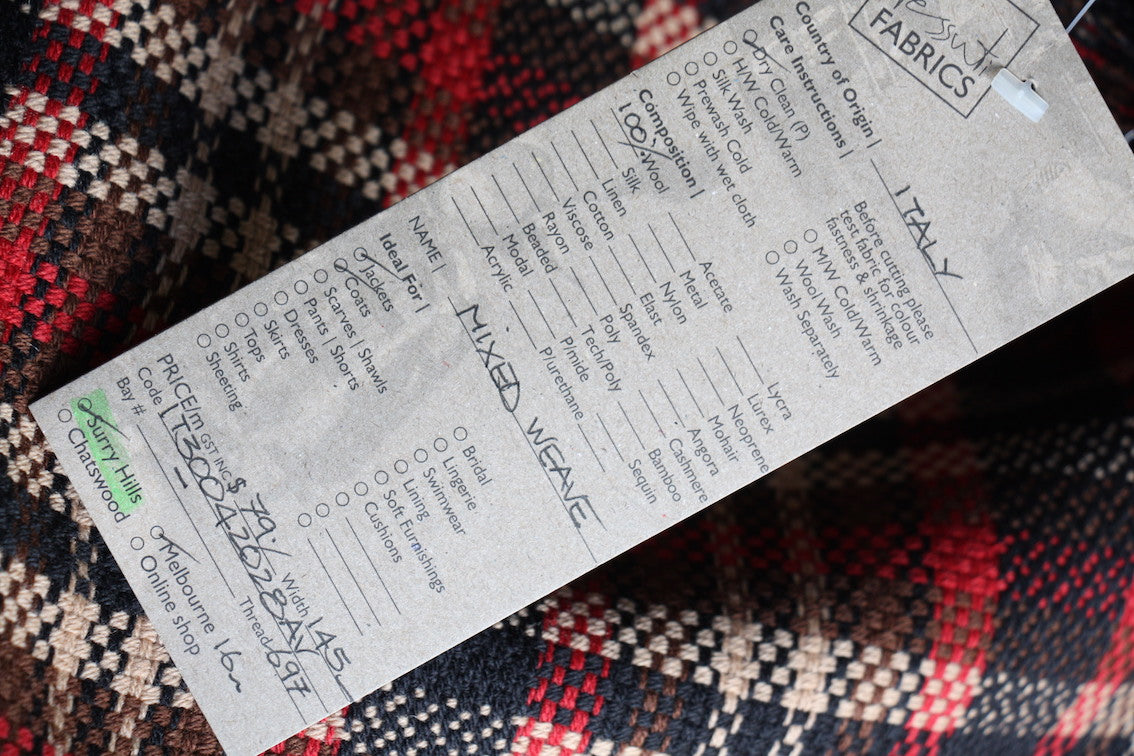 FABRICS
Country of Origin | ITALY
Care Instructions |
Dry Clean (P)
H/W Cold/Warm
Silk Wash
Prewash Cold
Wipe with wet cloth
Before cutting please
test fabric for colour
fastness & shrinkage
M/W Cold/Warm
Wool Wash
Wash Separately
Composition |
100% Wool
Silk
Linen
Cotton
Viscose
Rayon
Beaded
Modal
Acrylic
Acetate
Metal
Nylon
Elast
Spandex
Poly
Tech/Poly
P/mide
P/urethane
Lycra
Lurex
Neoprene
Mohair
Angora
Cashmere
Bamboo
Sequin
NAME | MIXED WEAVE
Ideal For |
Jackets
Coats
Scarves | Shawls
Pants | Shorts
Dresses
Skirts
Tops
Shirts
Sheeting
Bridal
Lingerie
Swimwear
Lining
Soft Furnishings
Cushions
PRICE/m GST INC $ 79.- Width 145
Code LT3004202028AV Thread 697
Bay # -
Surry Hills
Chatswood
Melbourne 16m
Online shop